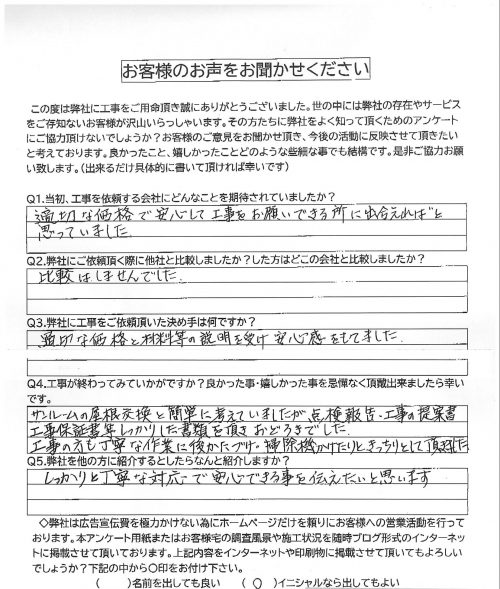 お客様のお声をお聞かせください
この度は弊社に工事をご用命頂き誠にありがとうございました。世の中には弊社の存在やサービス
をご存知ないお客様が沢山いらっしゃいます。その方たちに弊社をよく知って頂くためのアンケート
にご協力頂けないでしょうか？お客様のご意見をお聞かせ頂き、今後の活動に反映させて頂きたい
と考えております。良かったこと、嬉しかったことどのような些細な事でも結構です。是非ご協力お願
い致します。（出来るだけ具体的に書いて頂ければ幸いです）
Q1.当初、工事を依頼する会社にどんなことを期待されていましたか？
適切な価格で安心して工事をお願いできる所に出合えればと
思っていました
Q2.弊社にご依頼頂く際に他社と比較しましたか？した方はどこの会社と比較しましたか？
比較はしませんでした.
Q3.弊社に工事をご依頼頂いた決め手は何ですか？
適切な価格と材料等の説明を受け安心感をもてました.
Q4.工事が終わってみていかがですか？良かった事・嬉しかった事を忌憚なく頂戴出来ましたら幸い
です。
サンルームの屋根交換と簡単に考えていましたが点検報告・工事の提案書
工事保証書等しっかりした書類を頂きおどろきでした.
工事の方も丁寧な作業に後かたづけ.掃除機かけたりときっちりとして頂きました
Q5.弊社を他の方に紹介するとしたらなんと紹介しますか？
しっかりと丁寧な対応で安心できる事を伝えたいと思います
◇弊社は広告宣伝費を極力かけない為にホームページだけを頼りにお客様への営業活動を行って
おります。本アンケート用紙またはお客様宅の調査風景や施工状況を随時ブログ形式のインターネッ
トに掲載させて頂いております。上記内容をインターネットや印刷物に掲載させて頂いてもよろしい
でしょうか？下記の中から〇印をお付け下さい。
（　）名前を出しても良い　（ ○ ）イニシャルなら出してもよい